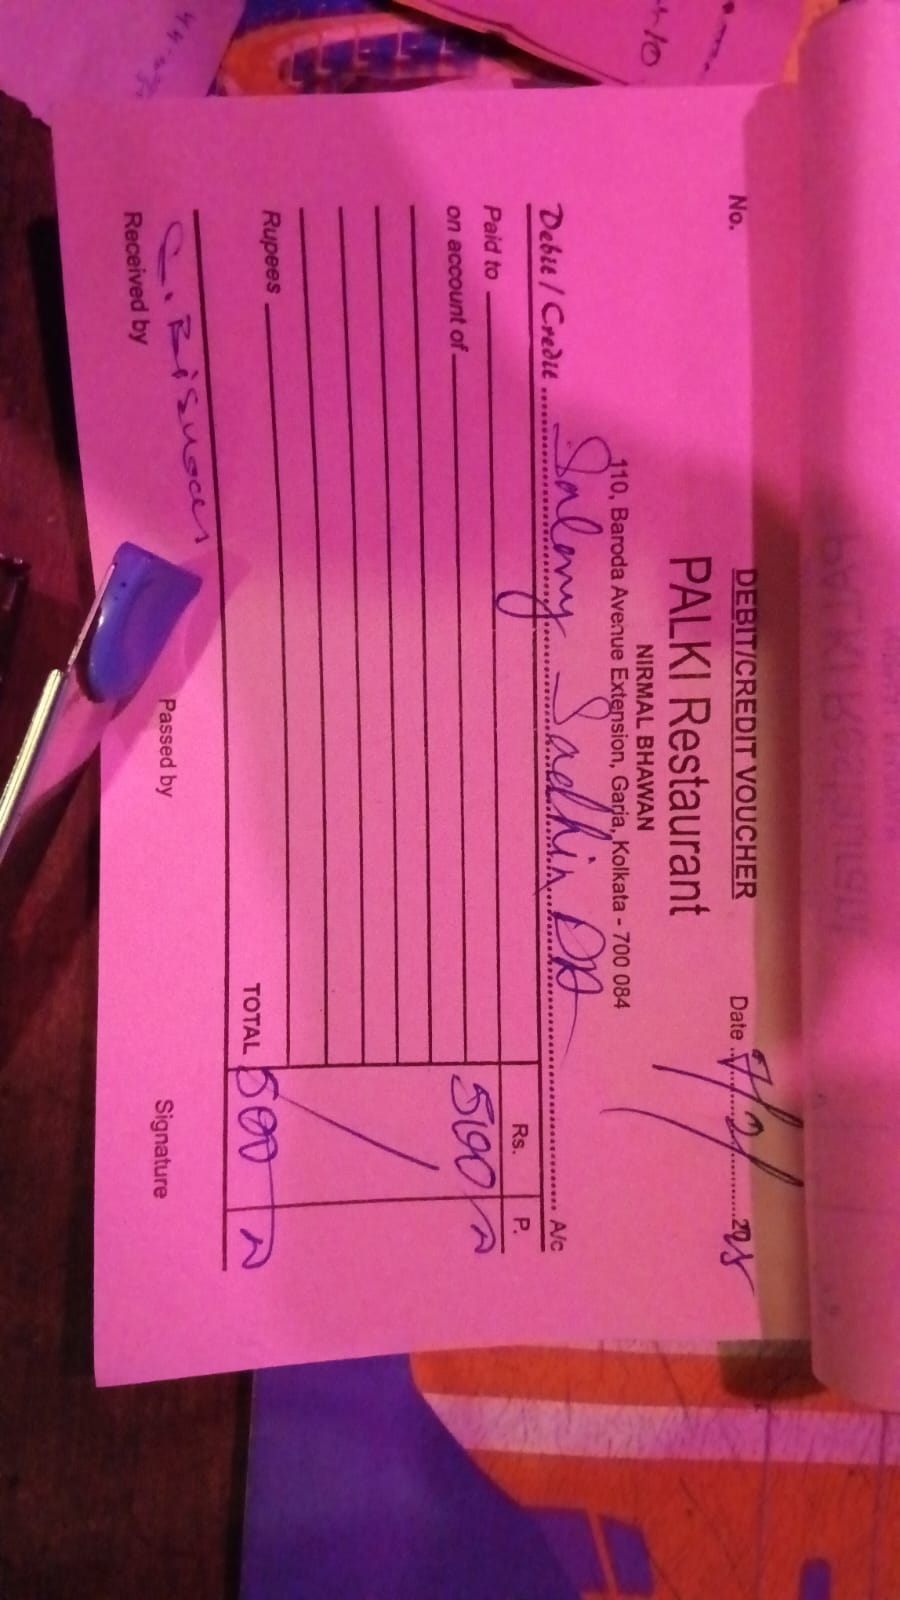 DEBIT/CREDIT VOUCHER
No. Date 7/2/ 2025
PALKI Restaurant
NIRMAL BHAWAN
110, Baroda Avenue Extension, Garia, Kolkata - 700 084
Debit / Credit Salary Sadhin DA A/c
Rs. P.
Paid to
on account of 500
Rupees TOTAL 500
C. Biswas
Received by Passed by Signature